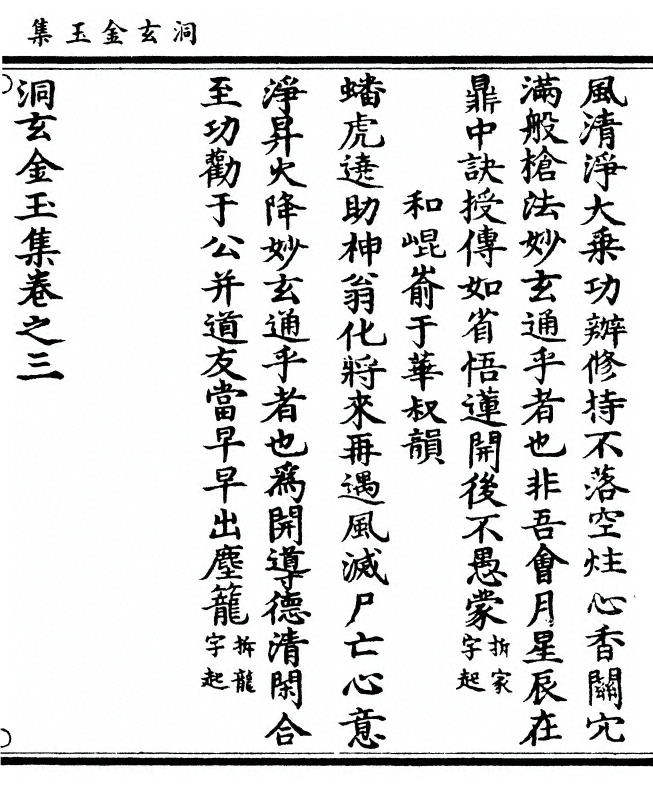 洞玄金玉集
風清淨大乗功辦修持不落空炷心香關穴
滿般槍法妙玄通乎者也非吾會月星辰在
鼎中訣授傳如省悟蓮開後不愚蒙拆家字起
和崐嵛于華叔韻
蟠虎遶助神翁化將來再遇風滅尸亡心意
淨昇火降妙玄通乎者也爲開導德清閑合
至功勸于公并道友當早早出塵籠拆龍字起
洞玄金玉集卷之三